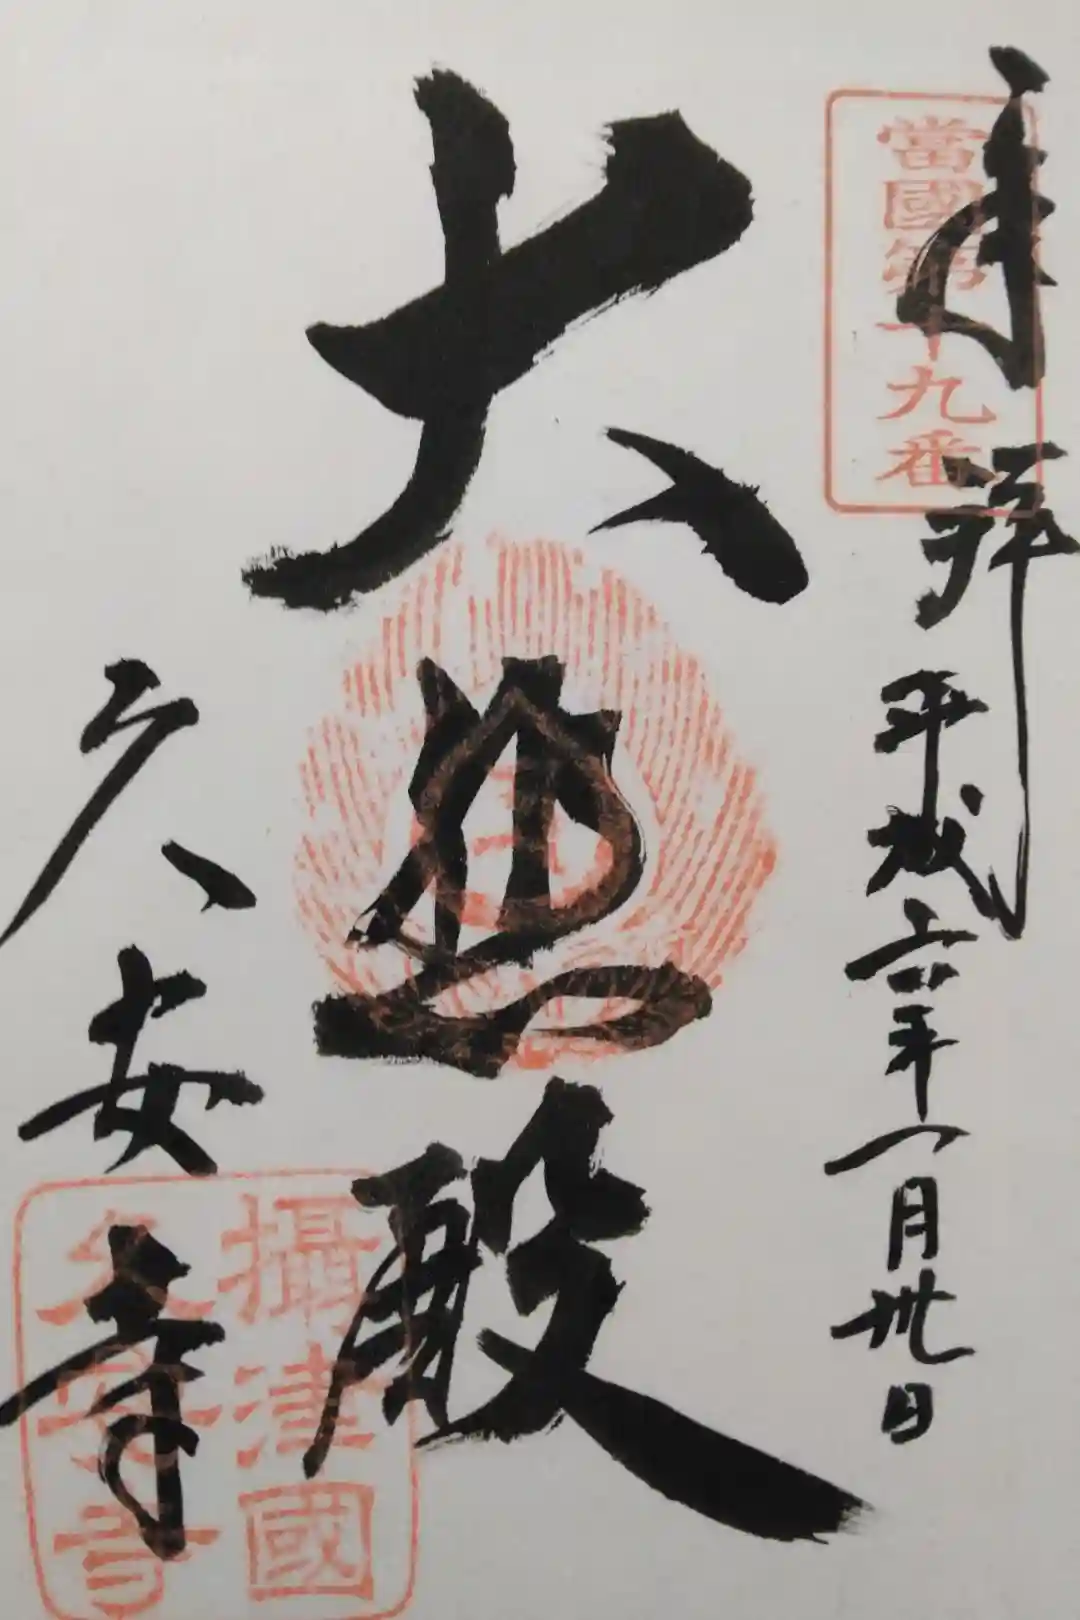 當國第十九番
奉拝 平成六年八月卅日
大悲殿
久安寺
攝津國
久安寺